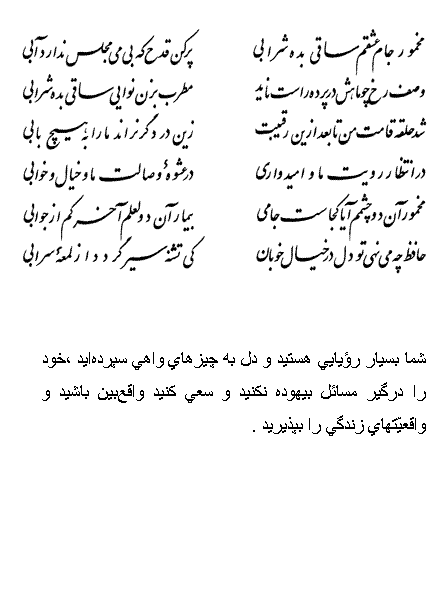 مخمور جام عشقم ساقی بده شرابی پرکن قدح که بی می مجلس ندارد آبی
وصف رخ چو ماهش در پرده راست ناید مطرب بزن نوایی ساقی بده شرابی
شد حلقه قامت من تا بعد ازین رقیبت زین در دگر نراند ما را به هیچ بابی
در انتظار رویت ما و امیدواری در عشوهٔ وصالت ما و خیال و خوابی
مخمور آن دو چشمم آیا کجاست جامی بیمار آن دو لعلم آخر کم از جوابی
حافظ چه می نهی تو دل در خیال خوبان کی تشنه سیر گردد از لمعهٔ سرابی
شما بسيار رؤيايي هستيد و دل به چيزهاي واهي سپرده‌ايد ،خود
را درگير مسائل بيهوده نكنيد و سعي كنيد واقع‌بين باشيد و
واقعيّتهاي زندگي را بپذيريد .